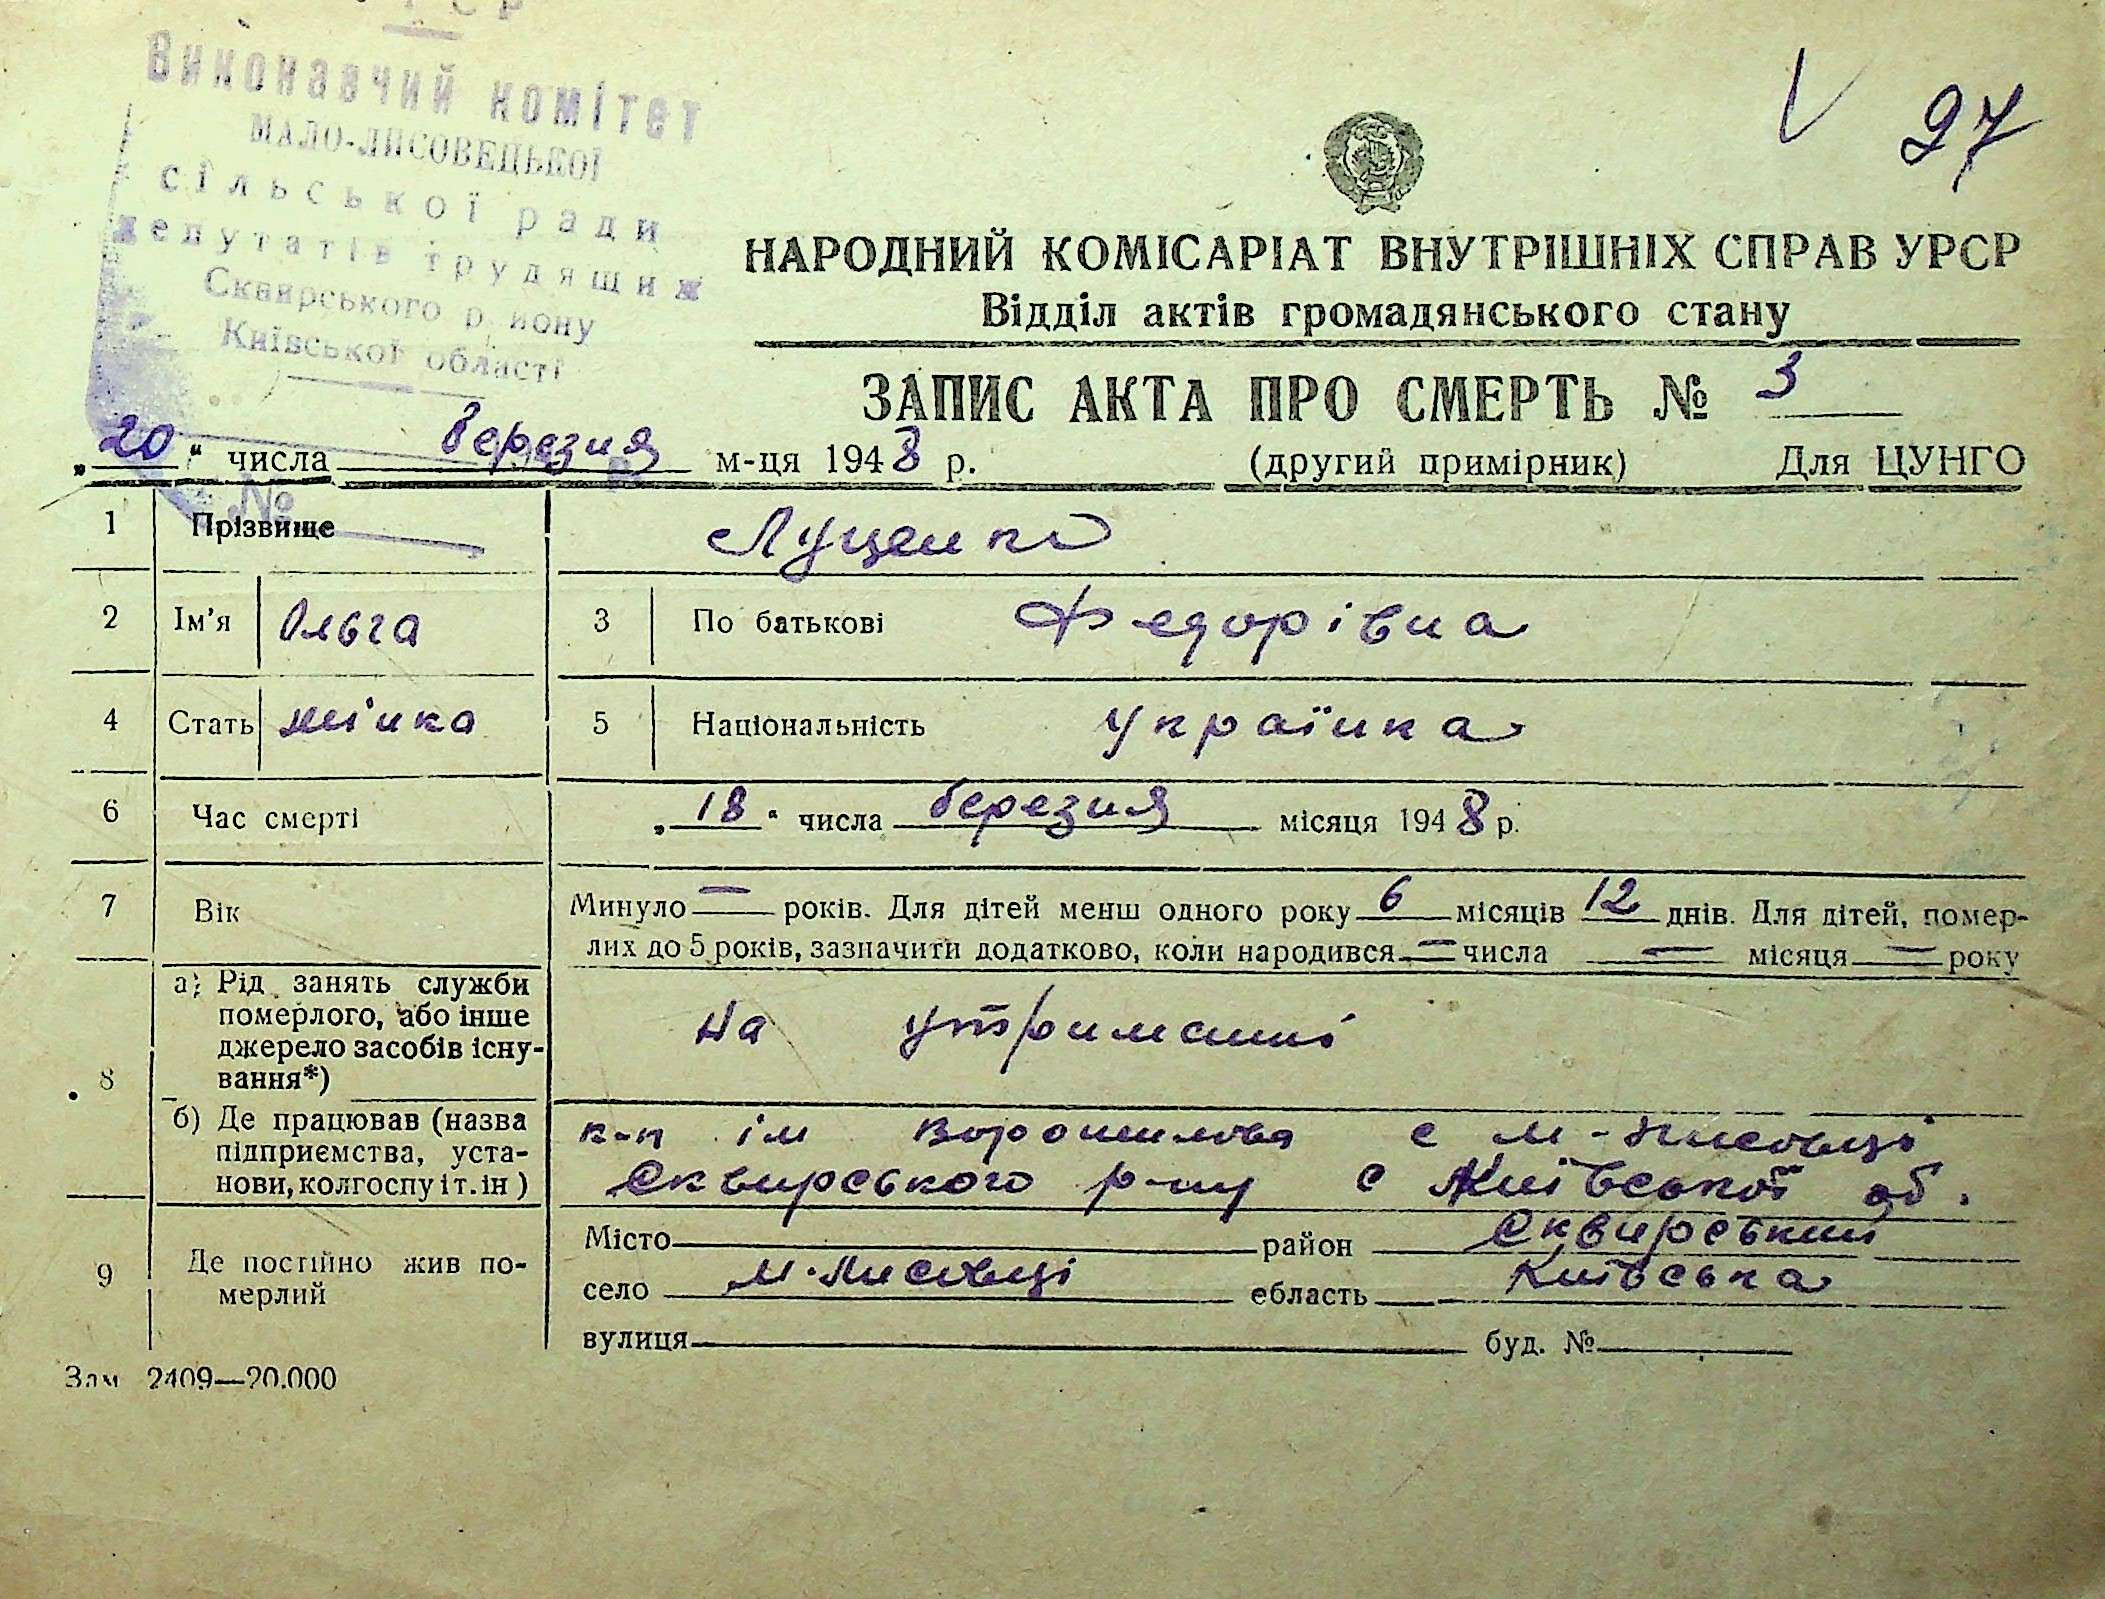 УРСР
Виконавчий комітет
МАЛО-ЛИСОВЕЦЬКОЇ
сільської ради
депутатів трудящих
Сквирського району
Київської області
№
V 97
НАРОДНИЙ КОМІСАРІАТ ВНУТРІШНІХ СПРАВ УРСР
Відділ актів громадянського стану
ЗАПИС АКТА ПРО СМЕРТЬ № 3
„20“ числа березня м-ця 1948 р. (другий примірник) Для ЦУНГО
1 Прізвище Луценко
2 Ім'я Ольга 3 По батькові Федорівна
4 Стать жінка 5 Національність українка
6 Час смерті „18“ числа березня місяця 1948 р.
7 Вік Минуло — років. Для дітей менш одного року 6 місяців 12 днів. Для дітей, помер-
лих до 5 років, зазначити додатково, коли народився — числа — місяця — року
8 а) Рід занять служби
померлого, або інше
джерело засобів існу-
вання*)
на утриманні
б) Де працював (назва
підприємства, уста-
нови, колгоспу і т. ін)
к-п ім Ворошилова с М-Лисовці
Сквирського р-ну с Київської об.
9 Де постійно жив по-
мерлий
Місто район Сквирський
село М-Лисовці область Київська
вулиця буд. №
Зам 2409—20.000